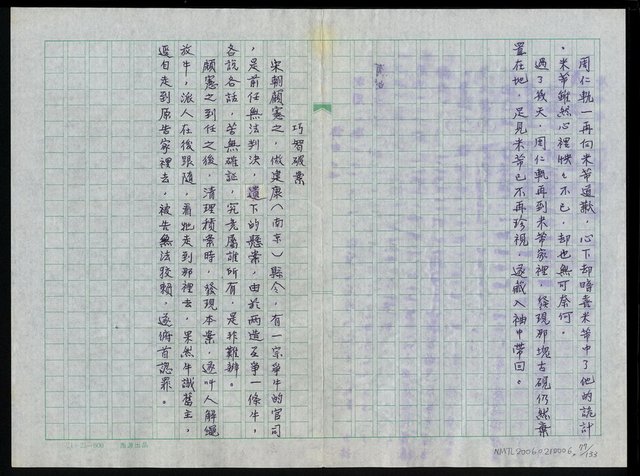 周仁軌一再向米芾道歉，心下却暗喜米芾中了他的詭計
。米芾雖然心裡怏怏不已，却也無可奈何。
過了幾天，周仁軌再到米芾家裡，發現那塊古硯仍然棄
置在地，足見米芾已不再珍視，遂藏入袖中帶回。
巧智破案
宋朝顧憲之，做建康（南京）縣令，有一宗爭牛的官司
，是前任無法判決，遺下的懸案，由於兩造互爭一條牛，
各說各話，苦無確証，究竟屬誰所有，是非難辨。
顧憲之到任之後，清理積案時，發現本案，遂叫人解繩
放牛，派人在後跟隨，看牠走到那裡去，果然牛識舊主，
逕自走到原告家裡去，被告無法狡賴，遂俯首認罪。
NMTL20060210006
79/133